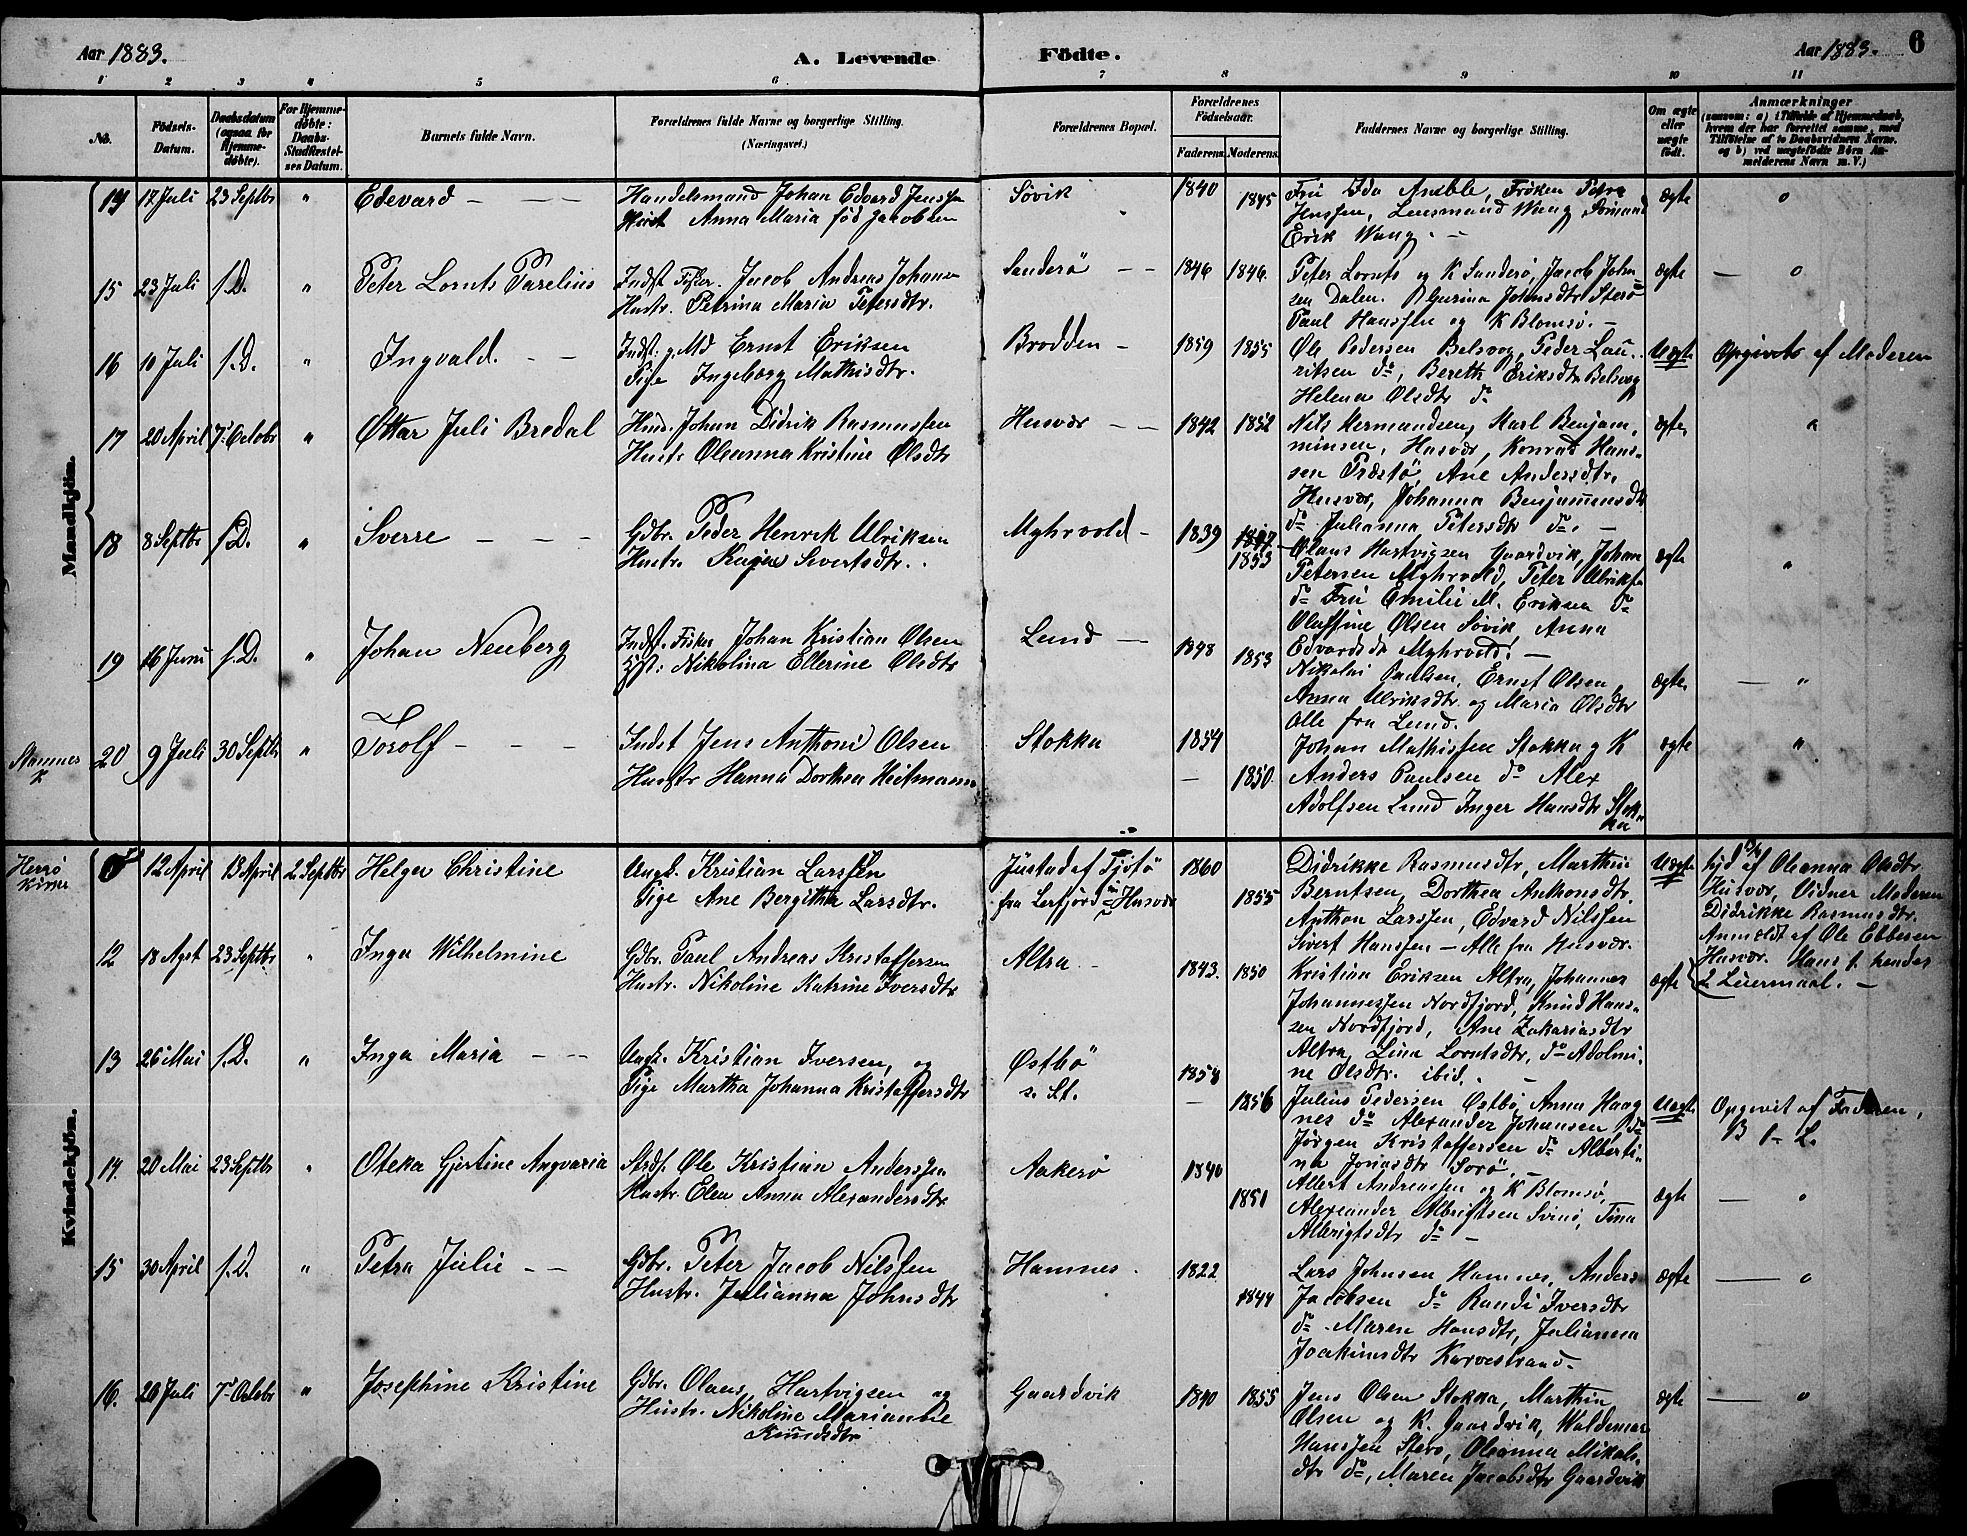 Aar 1883. A. Levende Födte. Aar 1883. 6
1 2 3 4 5 6 7 8 9 10 11
No.
Födsels-Datum.
Daabsdatum (ogsaa for Hjemmedöbte).
For Hjemmedöbte: Daabs-Stadfæstelses Datum.
Barnets fulde Navn.
Forældrenes fulde Navne og borgerlige Stilling. (Næringsvei.)
Forældrenes Bopæl.
Forældrenes Födselsaar.
Faderens. Moderens.
Faddernes Navne og borgerlige Stilling.
Om ægte eller uægte födt.
Anmærkninger
(saasom: a) i Tilfælde af Hjemmedaab, hvem der har forrettet samme, med Tilföielse af to Daabsvidners Navne. og b) ved uægtefödte Börn Anmelderens Navn m. V.)
Mandkjön.
14 17 Juli 23 Septbr " Edevard - - -
Handelsmand Johan Edvard Jenssen
Hust Anna Maria föd Jakobsen
Sövik 1840 1845
Fru Ida Anble, Fröken Petra
Jenssen, Lensmand Wang, Sömand
Erik Wang. -
ægte o
15 23 Juli s.D. " Peter Lornts Parelius
Indst Fisker. Jacob Andreas Johans
Hustr. Petrina Maria Petersdtr.
Sanderö - - 1846 1846.
Peter Lornts og K Sanderö, Jacob John-
sen Dalen. P Gurina Johnsdtr Sterö
Paul Hanssen og K Blomsö. -
ægte - o
16 10 Juli s.D. " Ingvald. - -
Indst. g. Md Ernst Eriksen
Pige Ingeborg Mathisdtr.
Brodden - 1859 1855
Ole Pedersen Belsvog, Peder Lau-
ritsen do, Bereth Eriksdtr Belsvog
Helena Olsdtr do
Uægte Opgivets af Moderen
17 20 April 7 Octobr " Ottar Juli Bredal
Husd. Johan Didrik Rasmussen
Hustr Oleanna Kristine Olsdtr
Husvær - - 1842 1852
Nils Hermandsen, Karl Benjam-
minsen, Husvær, Konrad Hans-
sen Prestö, Ane Andersdtr.
Husvær, Johanna Benjaminsdtr
do Julianna Petersdtr do. -
ægte. "
18 8 Septbr s.D. " Sverre - - -
Gdbr. Peder Henrik Ulriksen
Hustr. Kajsa Sivertsdtr.
Myhrvold - 1839 1847 1853
Olaus Hartvigsen Gaardvik, Johan
Petersen Myhrvold, Peter Ulriks
do Fru Emilie M. Eriksen do
Oluffine Olsen Sövik Anna
Edvardsdtr Myhrvold. -
ægte "
19 16 Juni s.D. " Johan Neuberg
Indst. Fisker Johan Kristian Olsen
Hst: Nikolina Ellerine Olsdtr
Lund - 1848 1853
Nikolai Paulsen, Ernst Olsen,
Anna Ulriksdtr. og Maria Olsdtr
Alle fra Lund.
ægte. - "
Stamnes K
20 9 Juli 30 Septbr " Torolf - - -
Indst Jens Anthoni Olsen
Hustr Hanna Dorthea Heitmann.
Stokka 1854 1850
Johan Mathissen Stokka g K
Anders Paulsen do Alex
Adolfsen Lund Inger Hansdtr Stok-
ka
ægte "
Kvindekjön.
Herrö Kirke
12 April 13 April 2 Septbr Helga Christine
Ungk. Kristian Larssen
Pige Ane Bergitha Larsdtr.
Justad af Tjötö
fra Lerfjord Husvær
1860 1855
Didrikke Rasmusdtr, Marthin
Berntsen, Dorthea Anthonsdtr.
Anthon Larssen, Edvard Nilssen
Sivert Hanssen - Alle fra Husvær.
Uægte
hjd af Oleanna Olsdtr
Husvær, Vidner Moderen
Didrikke Rasmusdtr.
Anmeldt af Ole Ebbesen
Husvær. Hans 1. hendes
2 Leiermaal. -
12 18 Agst 23 Septbr " Inga Wilhelmine
Gdbr. Paul Andreas Kristoffersen
Hustr. Nikoline Katrine Iversdtr
Altra - 1843. 1850
Kristian Eriksen Altra, Johannes
Johannessen Nordfjord, Knud Hans-
sen Nordfjord, Ane Zakariasdtr
Altra, Lina Lorntsdtr, do Adolmi-
ne Olsdtr. ibid. -
ægte
13 26 Mai s.D. " Inga Maria - -
Ungk. Kristian Iversen, og
Pige Martha Johanna Kristoffersdtr
Östbö
s. St.
1858 1856
Julius Pedersen Östbö, Anna Haag
nes do Alexander Johansen, do
Jörgen Kristoffersen do Alberti-
na Jonasdtr Sorö. -
Uægte Opgevit af Faderen.
B 1- L.
14. 20 Mai 23 Septbr " Oteka Gjertine Angvaria
Strds. Ole Kristian Anderssen
Hustr. Elen Anna Alexandersdtr
Aakerö 1840 1851
Albert Andreassen og K Blomsö,
Alexander Albrigtsen Svinö, Tina
Albrigtsdtr do -
ægte - "
15 30 April s.D. " Petra Julie - -
Gdbr. Peter Jacob Nilssen
Hustr. Julianna Johnsdtr
Hamnes. 1822 1844
Lars Johnsen Hamnes, Anders
Jacobsen do Randi Iversdtr
do. Maren Hansdtr, Julianna
Joakimsdtr Korvestrand.
ægte - o
16. 20 Juli 7 Octobr " Josephine Kristine
Gdbr. Olaus Hartvigsen og
Hustr. Nikoline Marianne
Knudsdtr
Gaardvik 1840 1855
Jens Olsen Stokka, Marthin
Olsen og K. Gaardvik, Waldemar
Hanssen Sterö, Oleanna Mikals-
dtr do, Maren Jacobsdtr Gaardvik
ægte - o